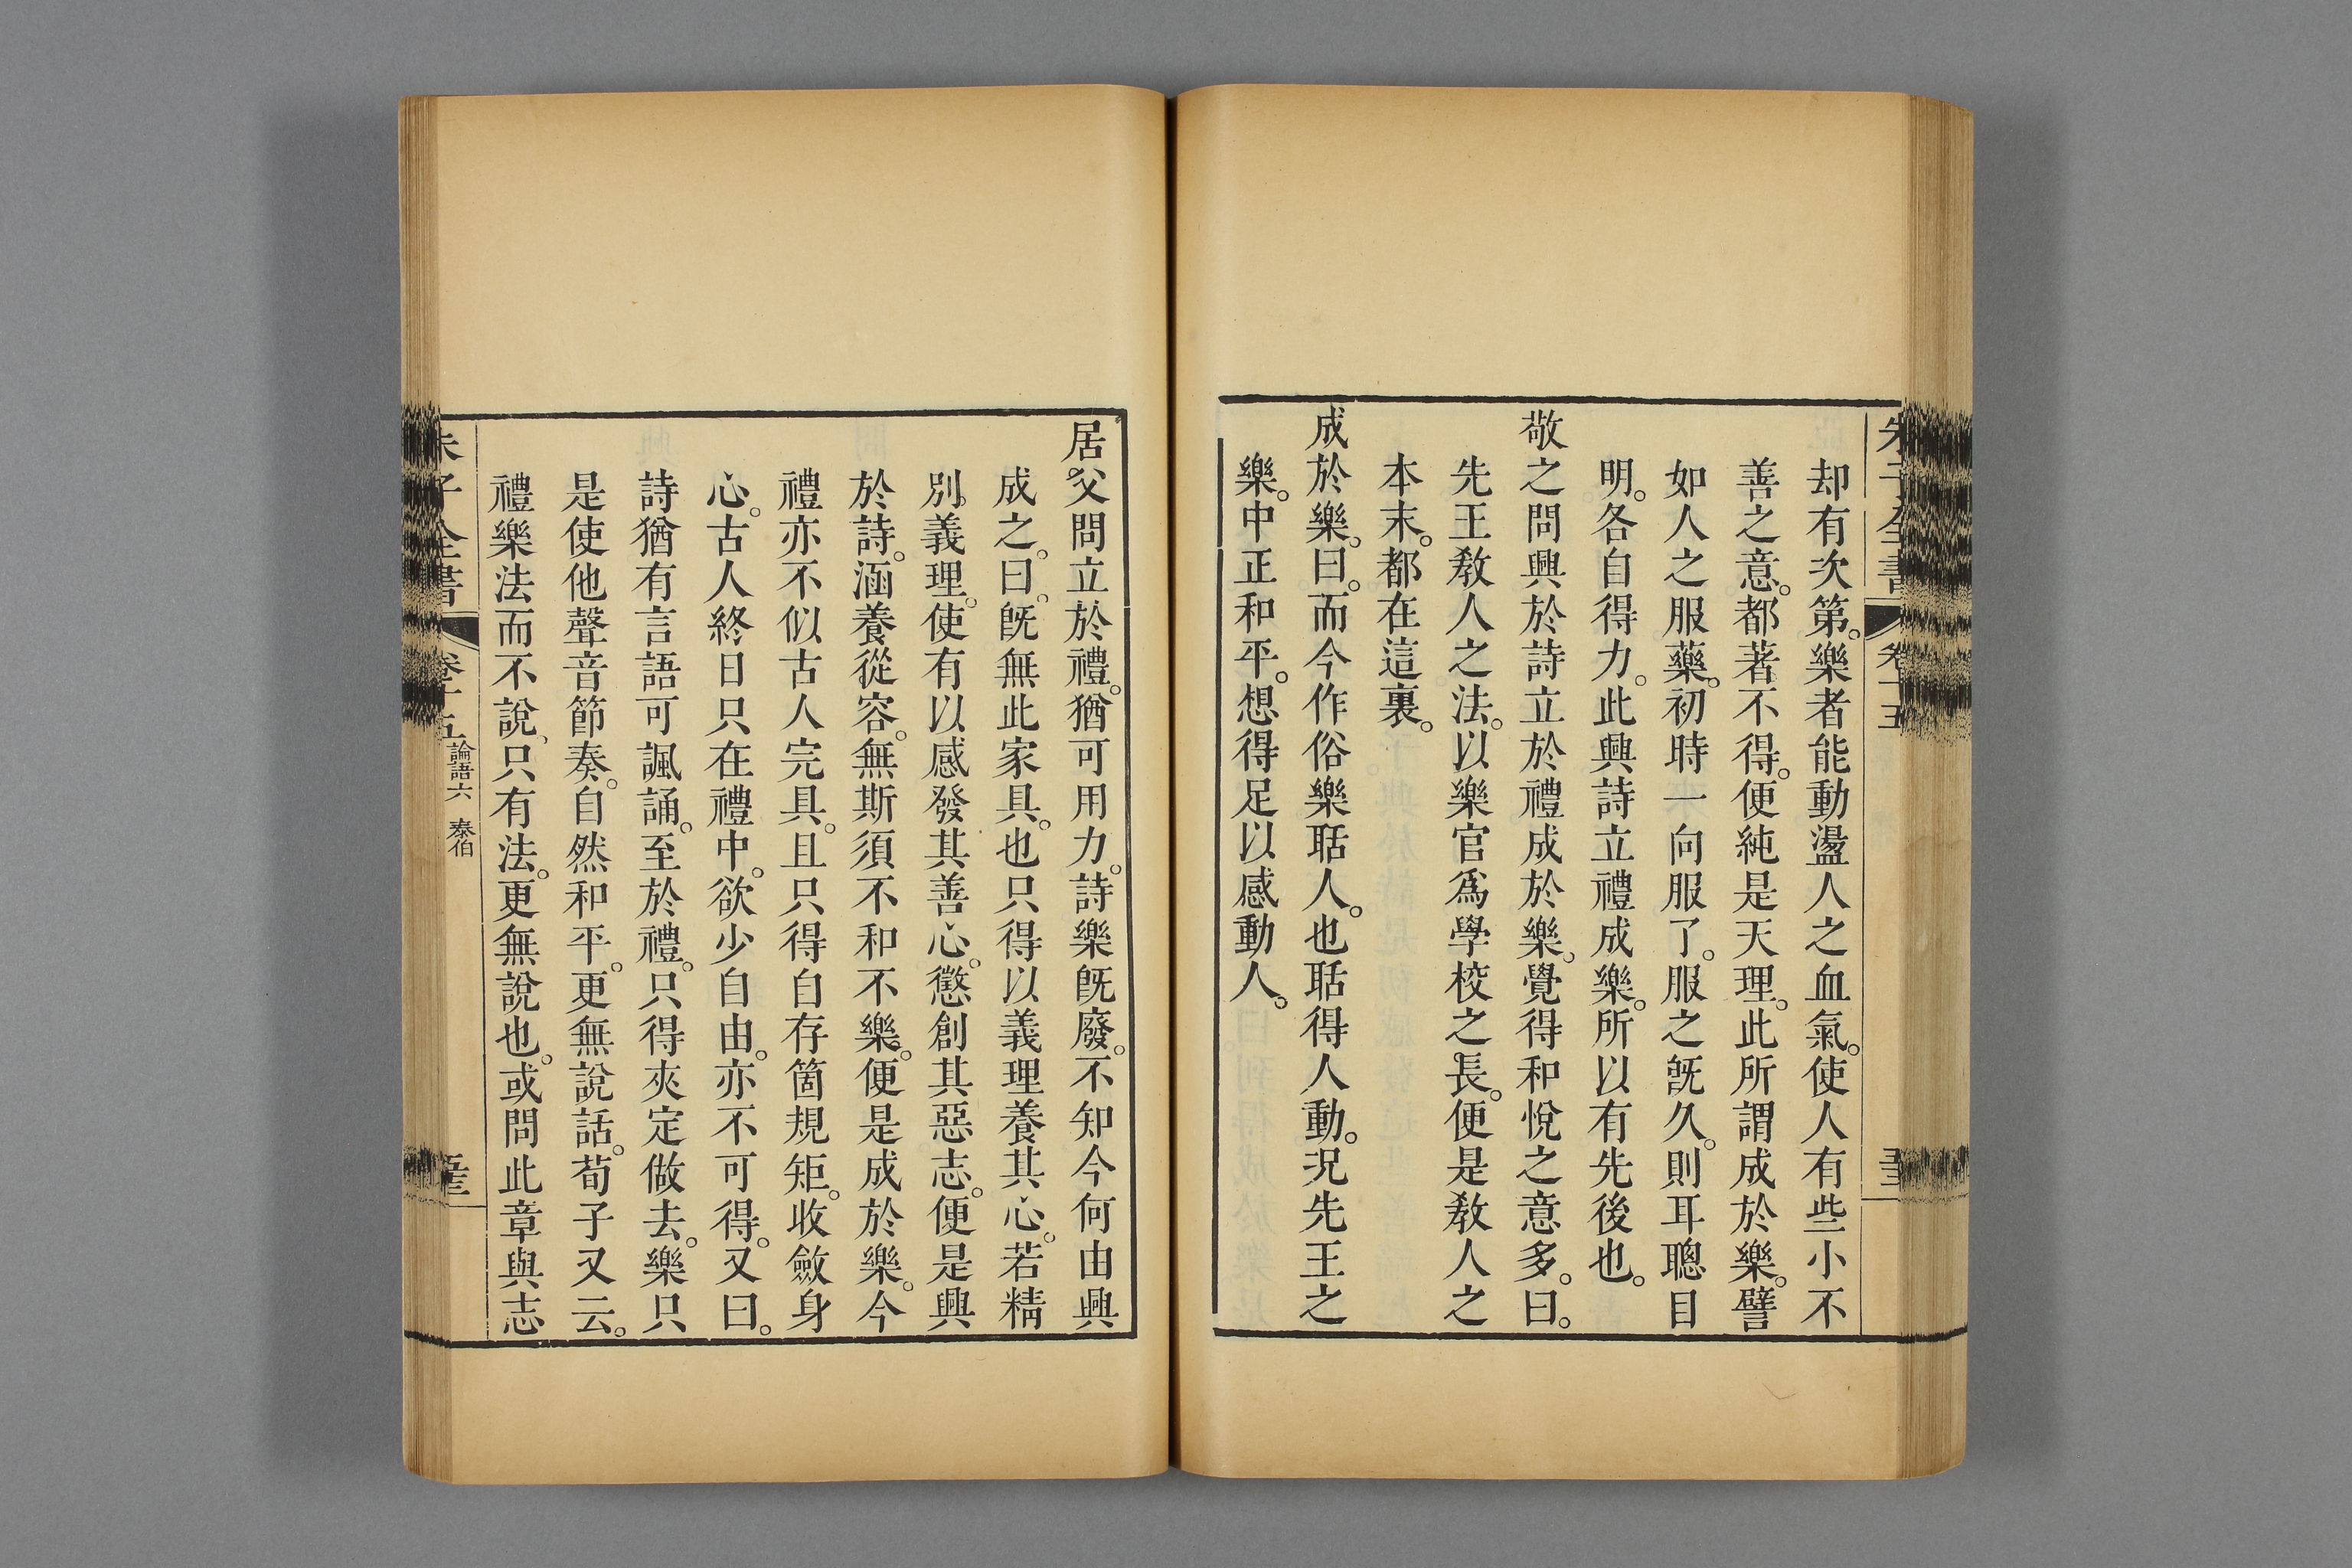 朱子全書 卷十五
却有次第。樂者能動盪人之血氣。使人有些小不
善之意。都著不得。便純是天理。此所謂成於樂。譬
如人之服藥。初時一向服了。服之旣久。則耳聰目
明。各自得力。此興詩立禮成樂。所以有先後也。
敬之問興於詩立於禮成於樂。覺得和悅之意多。曰。
先王敎人之法。以樂官爲學校之長。便是敎人之
本末。都在這裏。
成於樂。曰。而今作俗樂聒人。也聒得人動。況先王之
樂。中正和平。想得足以感動人。
居父問立於禮。猶可用力。詩樂旣廢。不知今何由興
成之。曰。旣無此家具。也只得以義理養其心。若精
別。義理。使有以感發其善心。懲創其惡志。便是興
於詩。涵養從容。無斯須不和不樂。便是成於樂。今
禮亦不似古人完具。且只得自存箇規矩。收斂身
心。古人終日只在禮中。欲少自由。亦不可得。又曰。
詩猶有言語可諷誦。至於禮。只得夾定做去。樂只
是使他聲音節奏。自然和平。更無說話。荀子又云。
禮樂法而不說、只有法。更無說也。或問此章與志
朱子全書 卷十五 論語六 泰伯